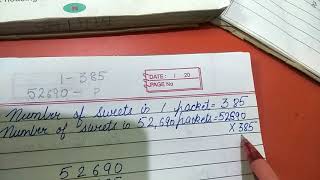 1 - 385
52690 - ?
DATE: / 20
PAGE No
Number of sweets in 1 packet = 385
Number of sweets in 52,690 packets = 52690
× 385
52690